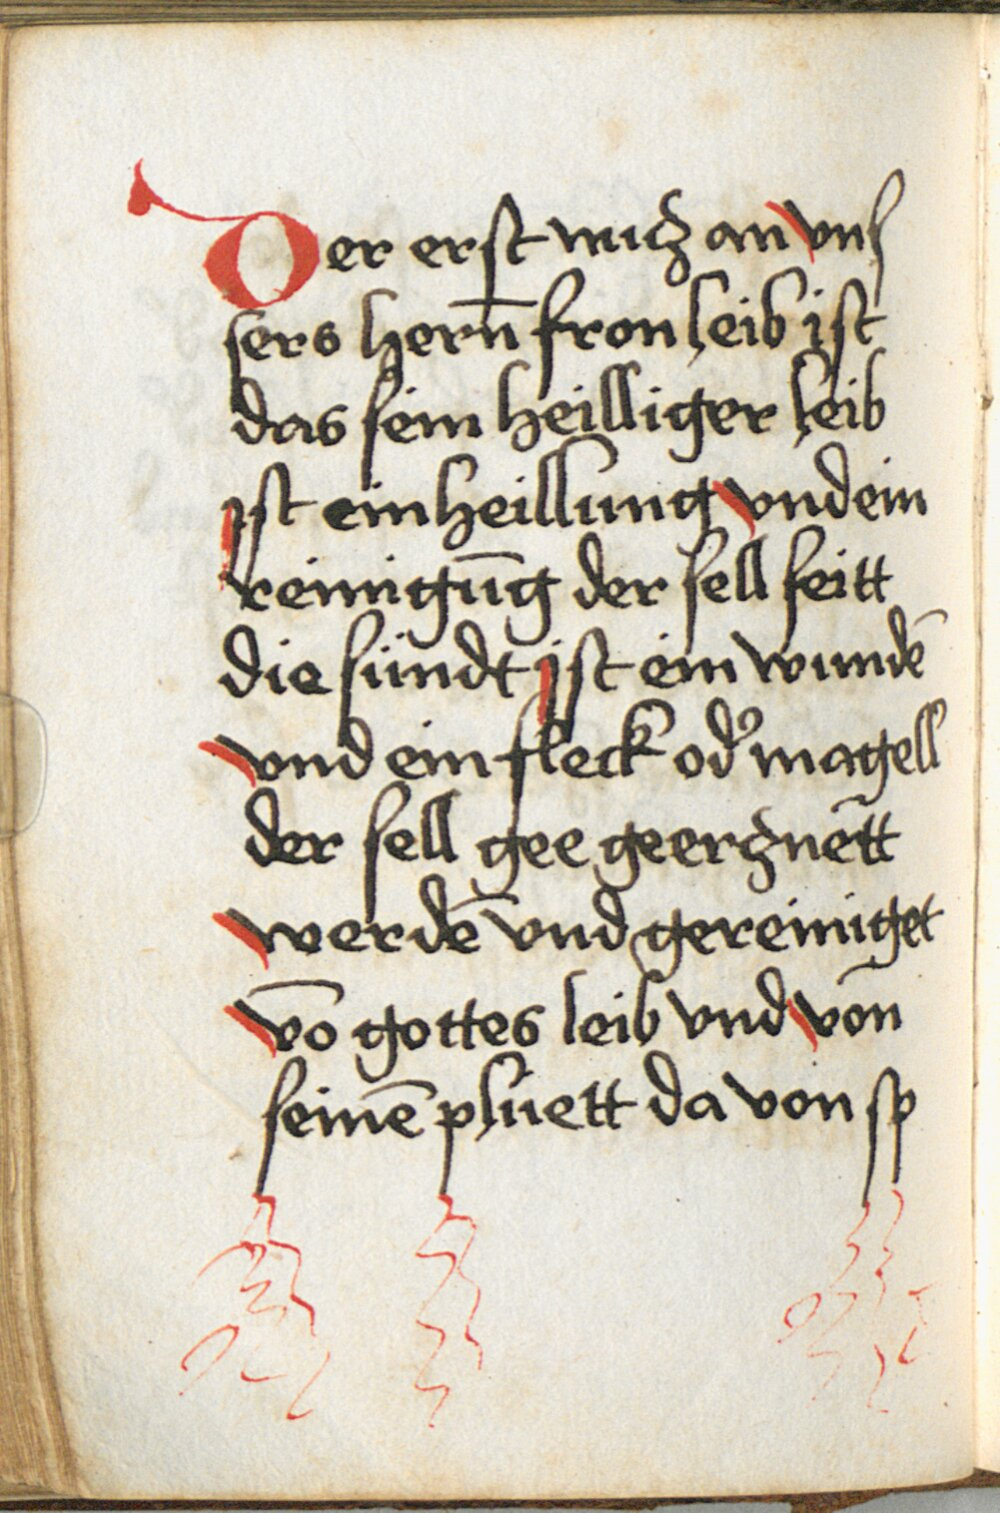 Der erst nucz an vnſ
sers hern̄ fron leib iſt
das ſein heilliger leib
iſt ein heillung vnd ein
reinigūg der ſell ſeitt
die ſündt iſt ein wundē
vnd ein fleck od͛ magell
der ſell gee geercznētt
werdē vnd gereiniget
vō gottes leib vnd von̄
ſeinē plüett da von ſp